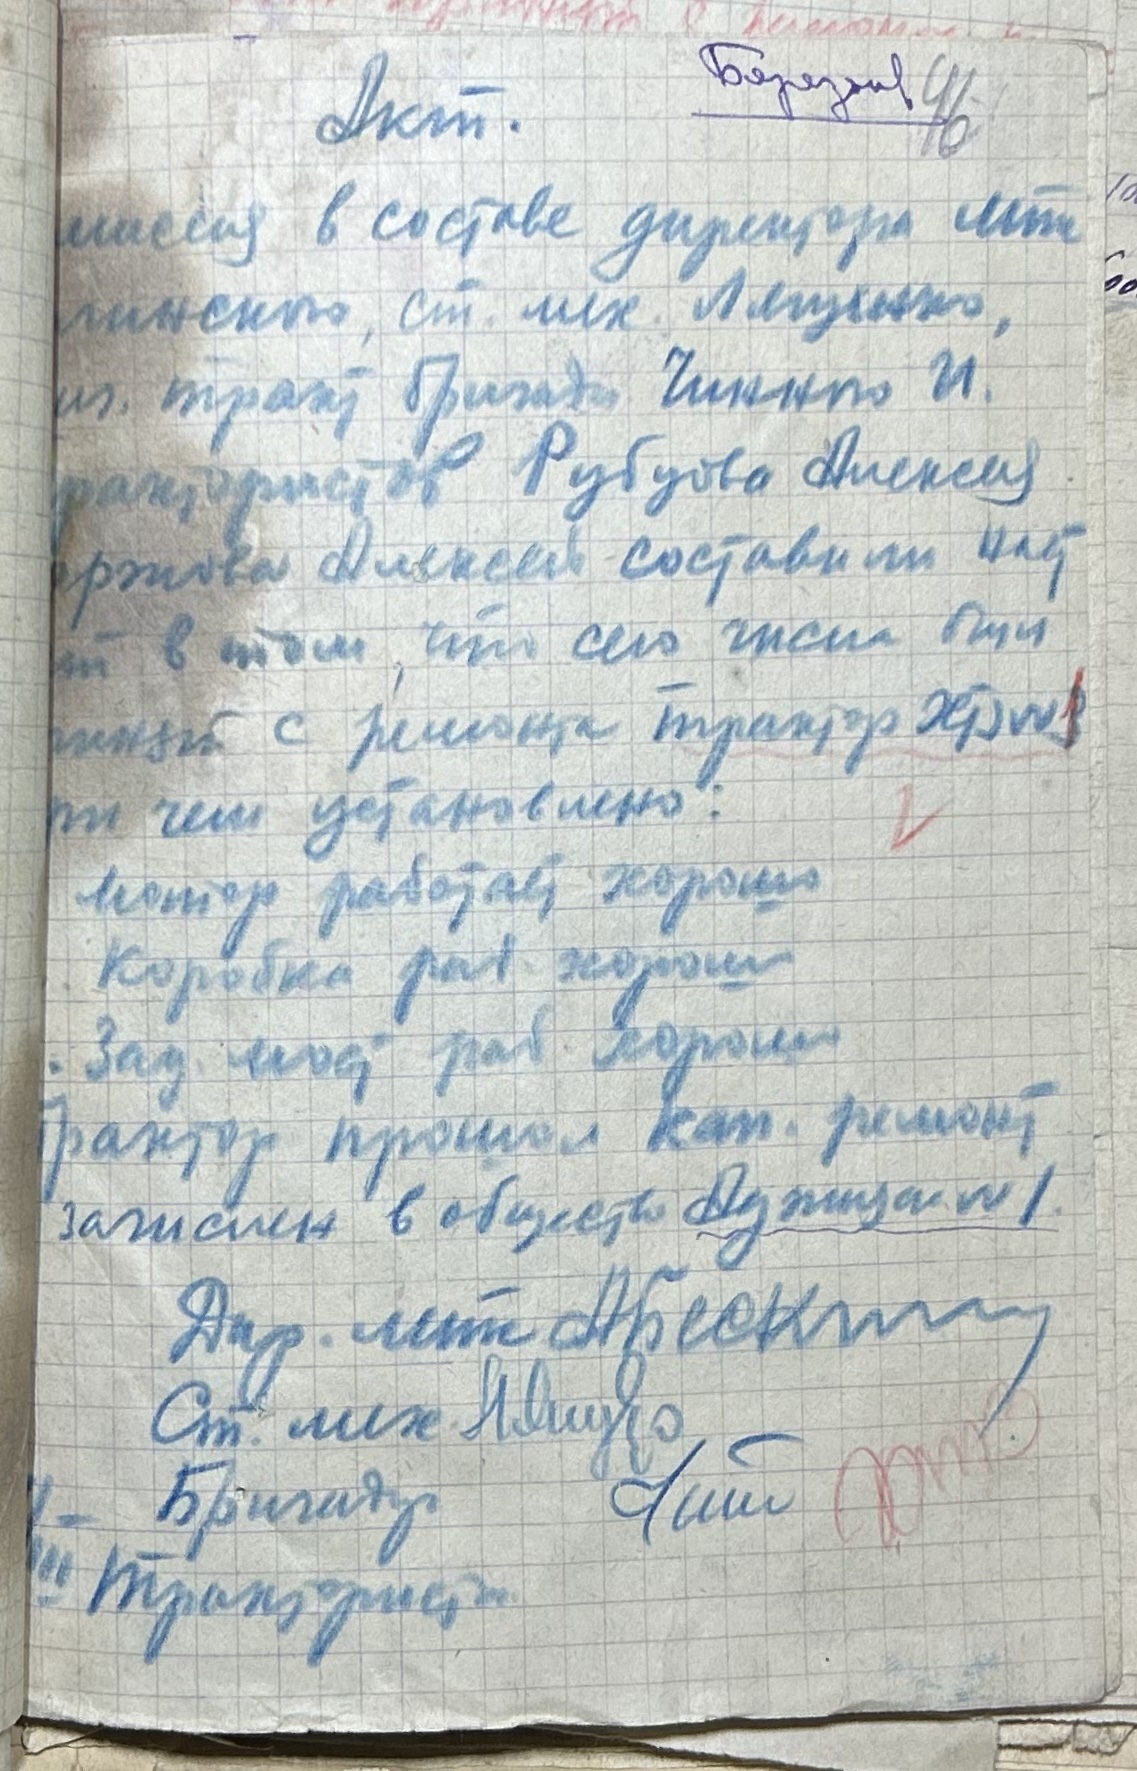 46
Акт.
миссия в составе директора мтс
линского, ст. мех. Лященко,
тракт бригады Чинного И.
трактористов Рубцова Алексея
оржова Алексея составили наст
кт в том, что сего числа был
с ремонта трактор ХТЗ №
ри чем установлено:
мотор работает хорошо
Коробка раб хорошо
Зад. мост раб хорошо
Трактор прошол кап. ремонт
зачислен в общество №1.
Дир. мтс
Ст. мех.
Бригадир
Трактористы